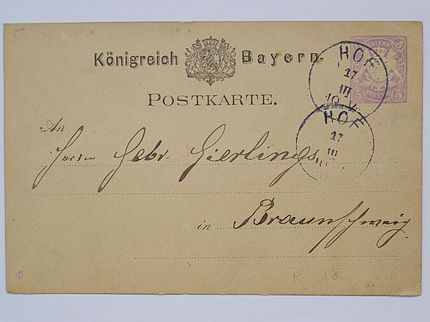 Königreich Bayern.
POSTKARTE.
HOF
27
III
10 V.
HOF
27
III
An
Herrn Gebr. Gierlings
in Braunschweig
P 18